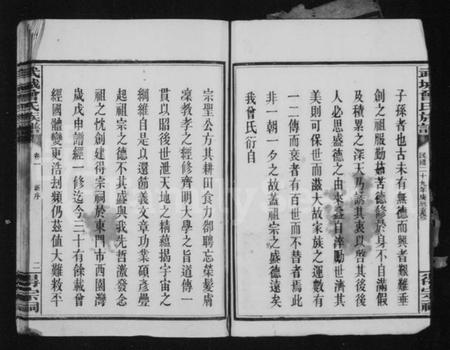 子孫者也古未有無德而興者艱難垂
創之祖服勤茹苦德修於身不自滿假
及積累之深天乃誘其衷以啓其後後
人必思盛德之由來益自淬勵世濟其
美則可保世而滋大故家族之運數有
一二傳而衰者有百世而不替者焉此
非一朝一夕之故蓋祖宗之盛德遠矣
我曾氏衍自
宗聖公方其耕田食力卻聘忘榮髮膚
凜教孝之經修齊明大學之旨道傳一
貫以昭後世泄天地之精蘊揭宇宙之
綱維自是以還節義文章功業碩彥疊
起祖宗之德不其盛與我先哲激發念
祖之忱創建得宗祠於東門市西園灣
歲戊申譜經一修迄今三十有餘載曾
經國體變更浩刼頻仍茲值大難敉平
武城曾氏族譜
卷一 新序
二
得宗祠